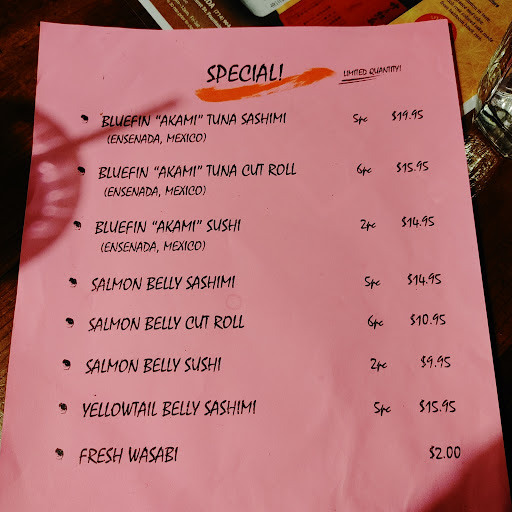 SPECIAL!
LIMITED QUANTITY!
BLUEFIN "AKAMI" TUNA SASHIMI 5pc $19.95
(ENSENADA, MEXICO)
BLUEFIN "AKAMI" TUNA CUT ROLL 6pc $15.95
(ENSENADA, MEXICO)
BLUEFIN "AKAMI" SUSHI 2pc $14.95
(ENSENADA, MEXICO)
SALMON BELLY SASHIMI 5pc $14.95
SALMON BELLY CUT ROLL 6pc $10.95
SALMON BELLY SUSHI 2pc $9.95
YELLOWTAIL BELLY SASHIMI 5pc $15.95
FRESH WASABI $2.00